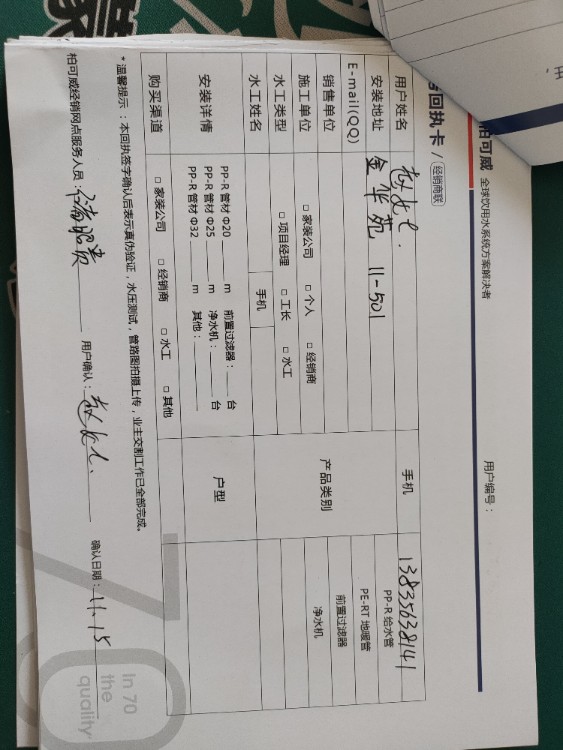 柏可威 全球饮用水系统方案解决者
用户编号：
回执卡 / 经销商联
用户姓名
手机 13835638141
安装地址 金华苑 11-501
E-mail(QQ)
产品类别
PP-R 给水管
PE-RT 地暖管
前置过滤器
净水机
销售单位 □ 家装公司 □ 个人 □ 经销商
施工单位
水工类型 □ 项目经理 □ 工长 □ 水工
水工姓名 手机
安装详情
PP-R 管材 Φ20 m 前置过滤器： 台
PP-R 管材 Φ25 m 净水机： 台
PP-R 管材 Φ32 m 其他：
户型
购买渠道 □ 家装公司 □ 经销商 □ 水工 □ 其他
* 温馨提示：本回执签字确认后表示真伪验证，水压测试，管路图拍摄上传，业主交割工作已全部完成。
柏可威经销网点服务人员： 用户确认： 确认日期：11.15
In 70
the
quality